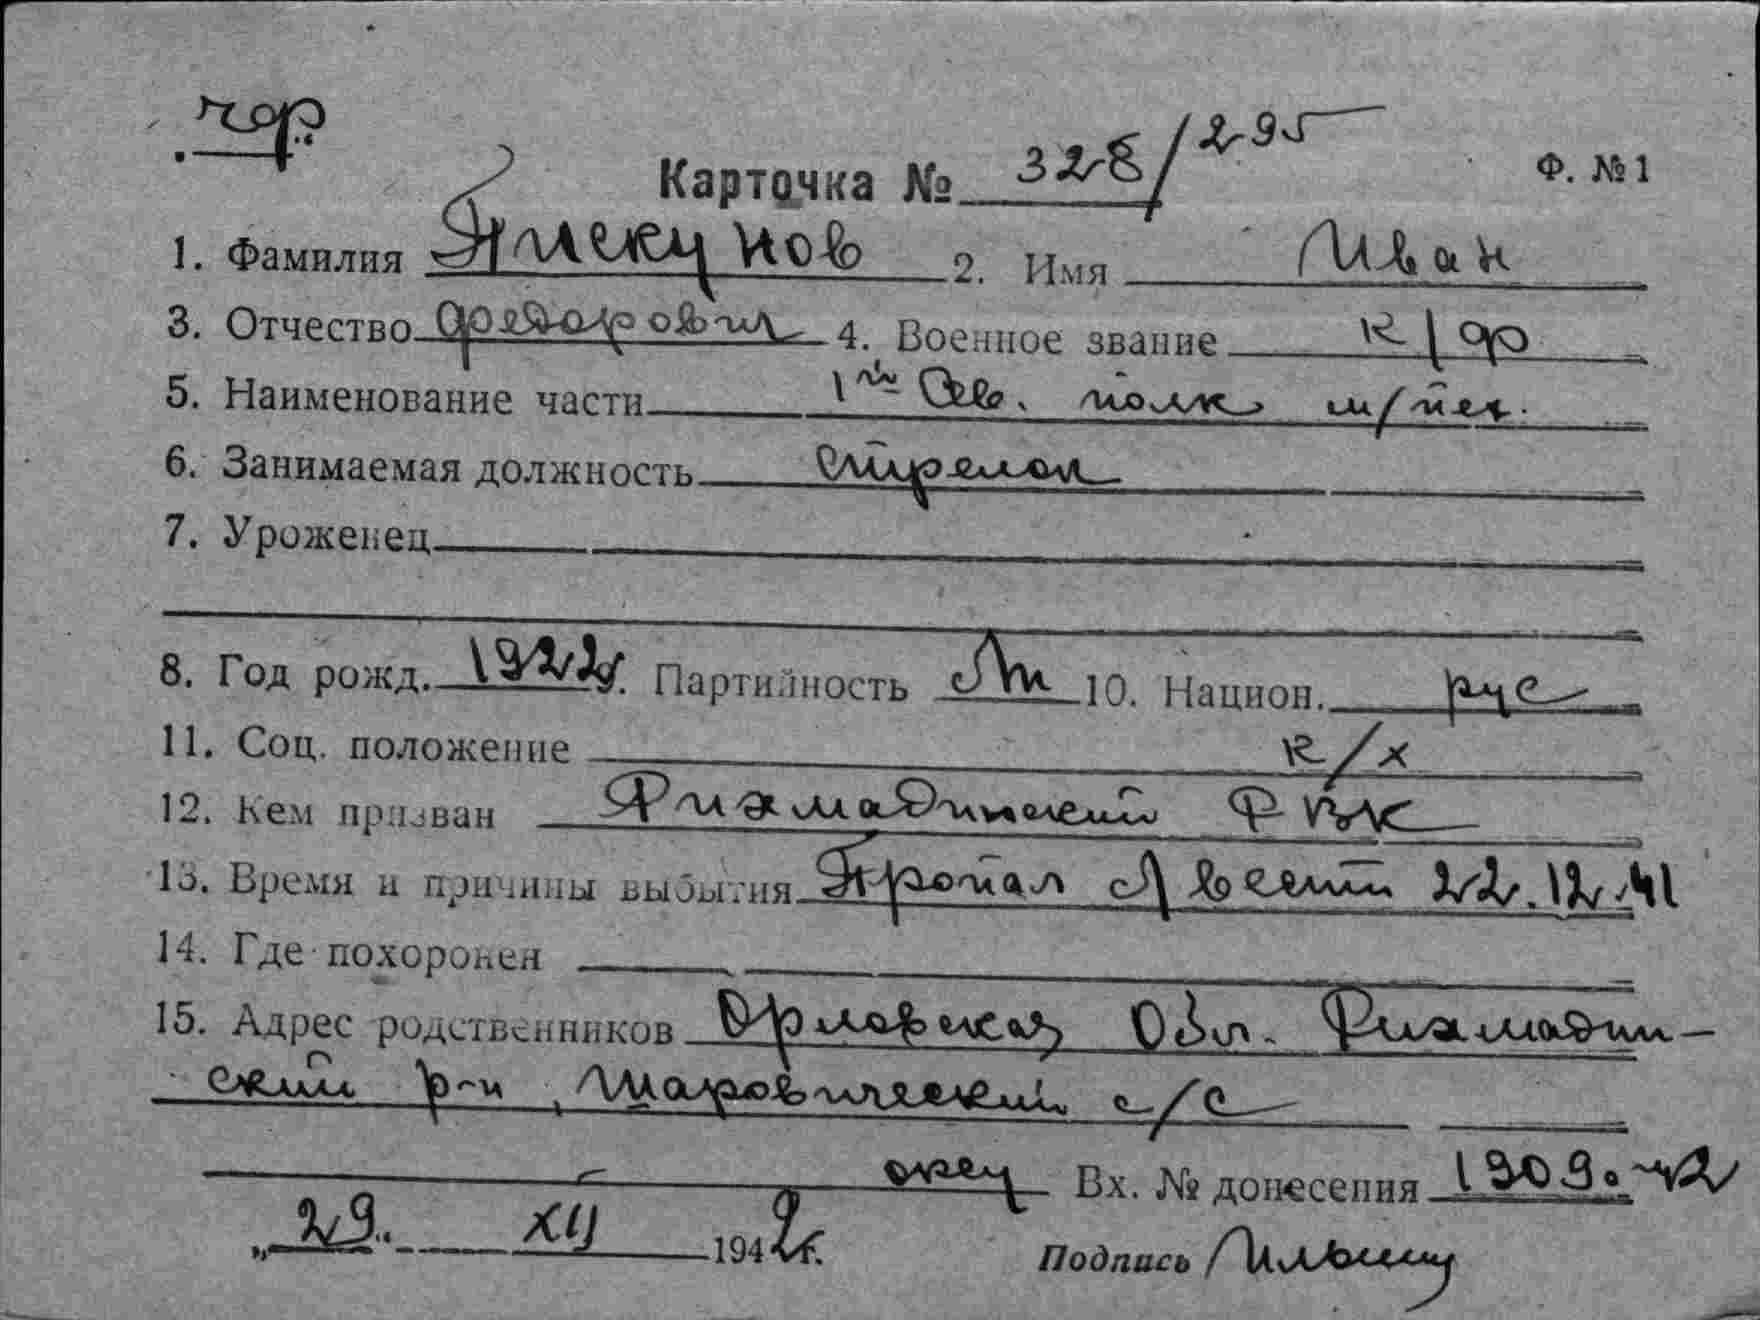 Карточка № 328/295 Ф. № 1
1. Фамилия Пискунов 2. Имя Иван
3. Отчество Федорович 4. Военное звание к/ф
5. Наименование части 1й Осв. полк м/пех.
6. Занимаемая должность Стрелок
7. Уроженец
8. Год рожд. 1922 г. Партийность 10. Национ. рус
11. Соц. положение к/х
12. Кем призван РВК
13. Время и причины выбытия Пропал без вести 22.12.41
14. Где похоронен
15. Адрес родственников Орловская Обл.
ский р-н, с/с
отец Вх. № донесения 1909. 42
„29“ XII 1942 г. Подпись